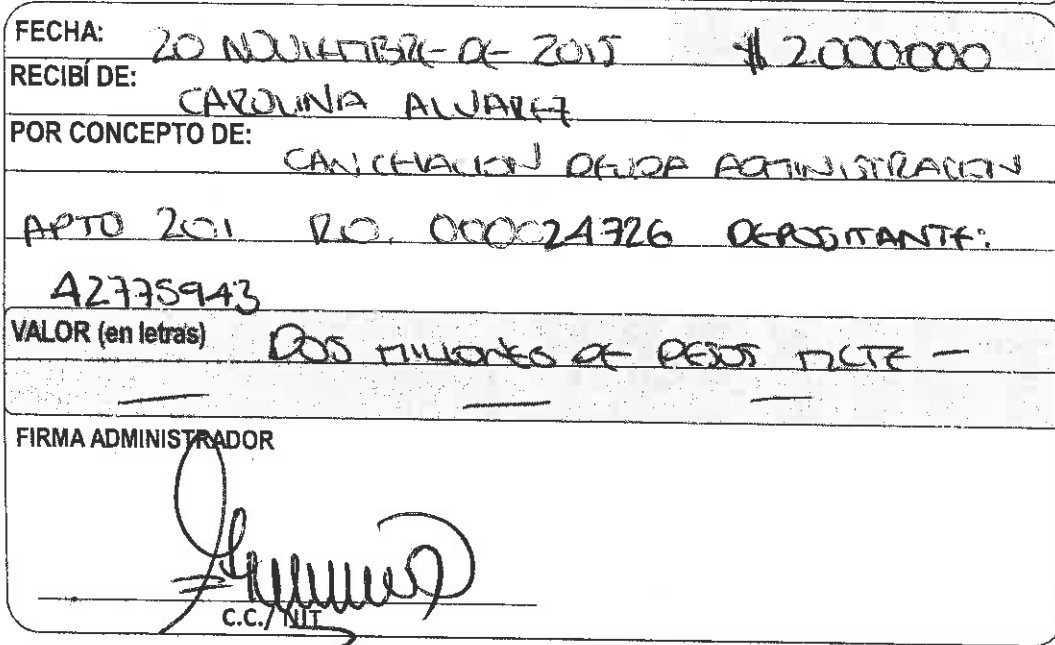 FECHA: 20 NOVIEMBRE DE 2015 $ 2.000.000
RECIBÍ DE: CAROLINA ALVAREZ
POR CONCEPTO DE: CANCELACION DEUDA ADMINISTRACION
APTO 201 R.O. 000024726 DEPOSITANTE:
42775943
VALOR (en letras) DOS MILLONES DE PESOS MCTE —
— — —
FIRMA ADMINISTRADOR
C.C./ NIT